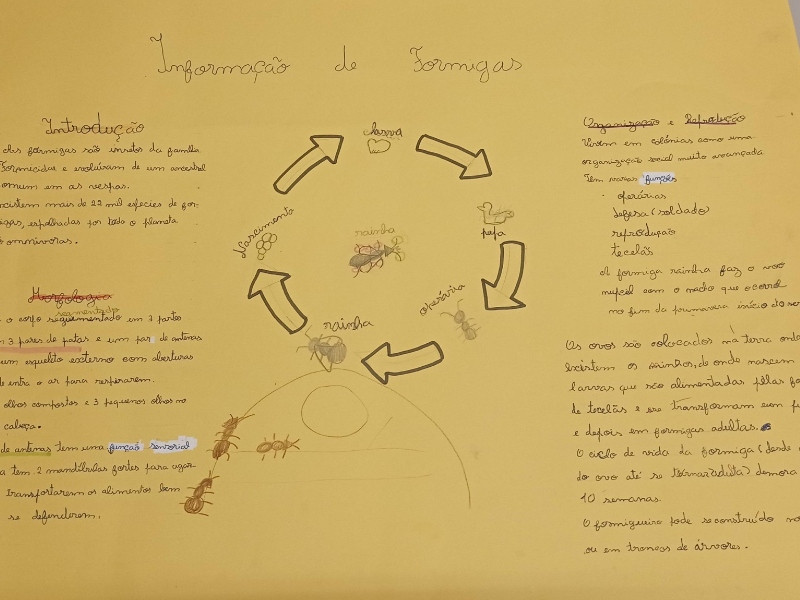 Informação de Formigas
Introdução
As formigas são insetos da família
Formicidae e evoluíram de um ancestral
comum em as vespas.
existem mais de 22 mil espécies de for-
migas, espalhadas por todo o planeta
omnívoras.
Morfologia
segmentado
o corpo seguimentado em 3 partes
3 pares de patas e um par de antenas
um esquelito externo com aberturas
entra o ar para respirarem.
olhos compostos e 3 pequenos olhos no
cabeça.
de antenas tem uma função sensorial
tem 2 mandíbulas fortes para agar-
transportarem os alimentos bem
se defenderem.
larva
pupa
operária
rainha
Nascimento
rainha
Organização e Reprodução
Vivem em colónias como uma
organização social muito avançada
Tem varias funções
operárias
defesa (soldado)
reprodução
tecelãs
A formiga rainha faz o voo
nupcial com o macho que ocorre
no fim da primavera início do
Os ovos são colocados na terra onde
existem os ninhos, de onde nascem
larvas que são alimentadas pelas
de tecelãs e se transformam em
e depois em formigas adultas.
O ciclo de vida da formiga (desde
do ovo até se tornar adulta) demora
10 semanas.
O formigueiro pode se construído no
ou em troncos de árvores.